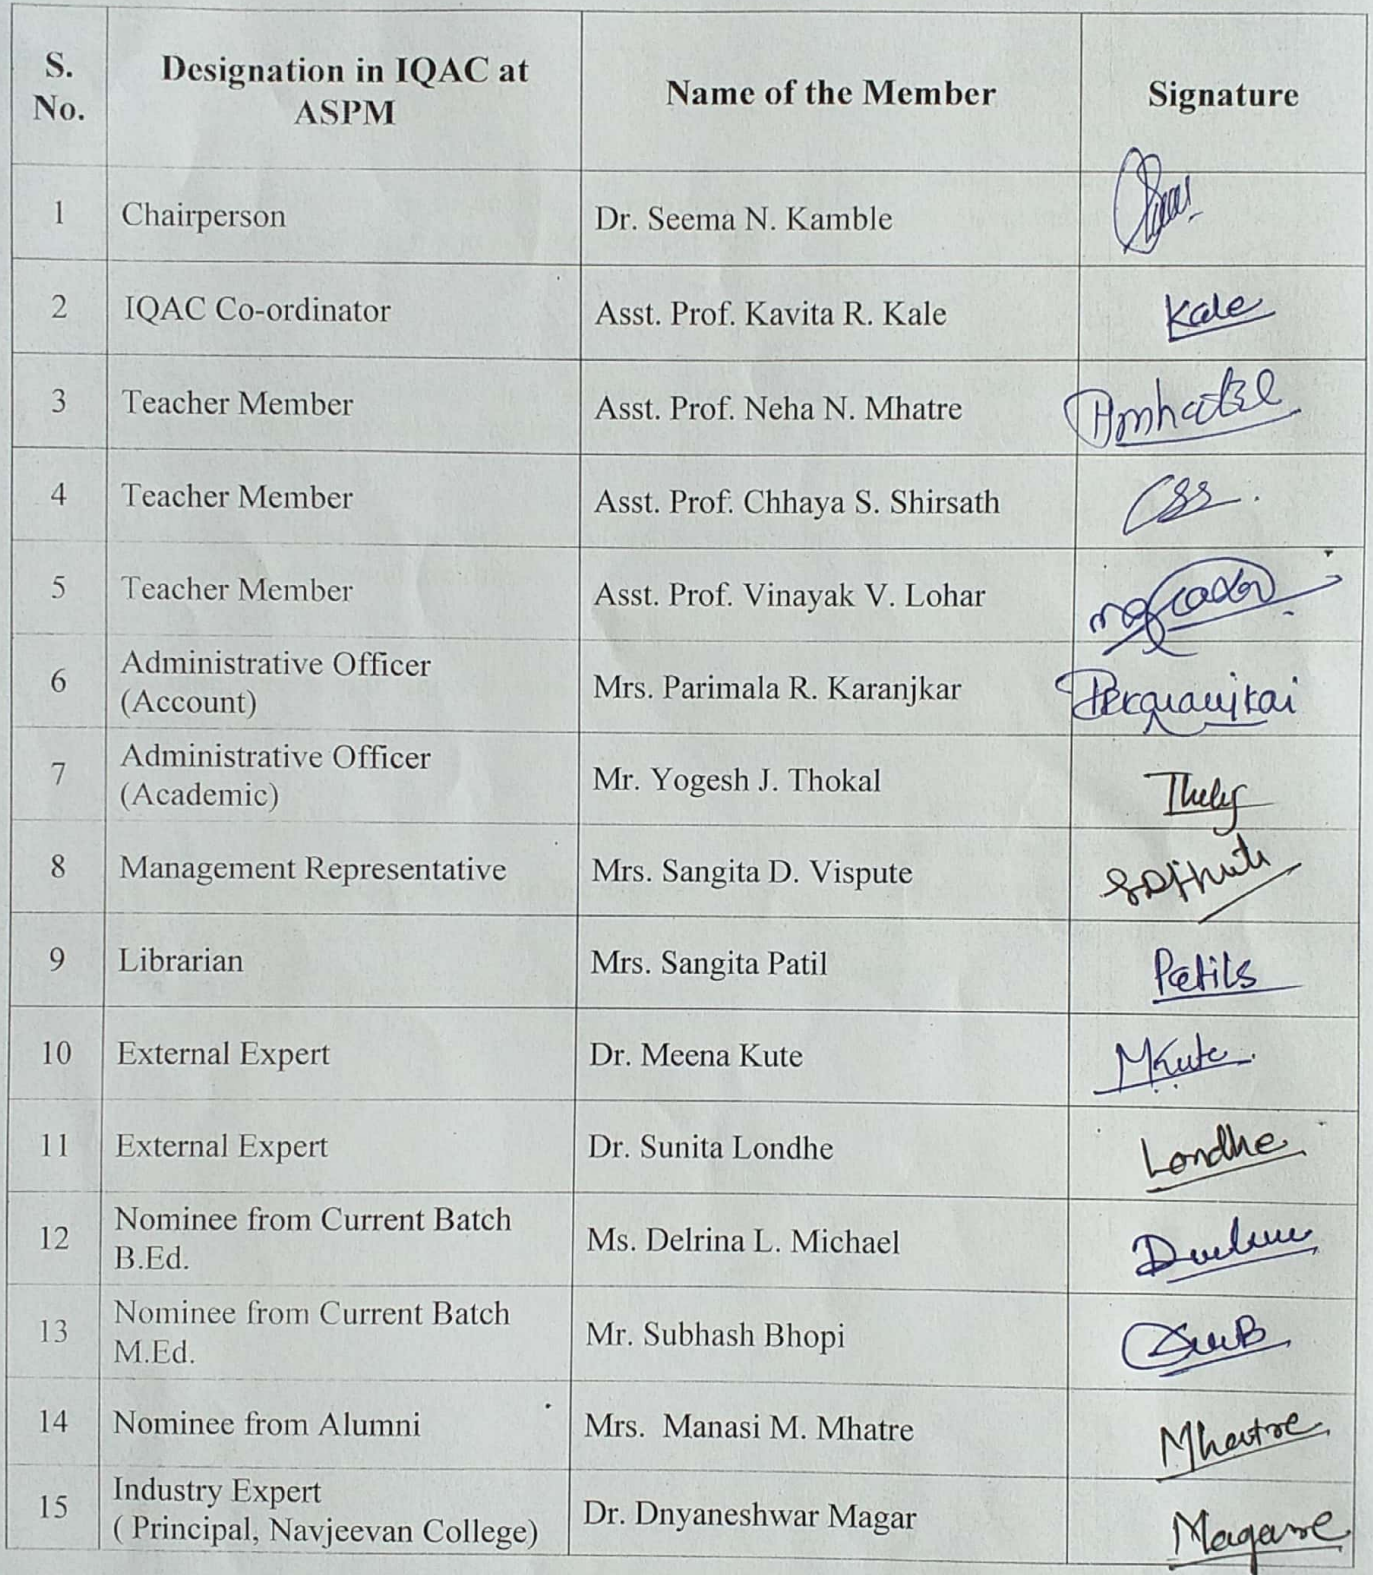 S. No. Designation in IQAC at ASPM Name of the Member Signature
1 Chairperson Dr. Seema N. Kamble
2 IQAC Co-ordinator Asst. Prof. Kavita R. Kale Kale
3 Teacher Member Asst. Prof. Neha N. Mhatre
4 Teacher Member Asst. Prof. Chhaya S. Shirsath CSS.
5 Teacher Member Asst. Prof. Vinayak V. Lohar
6 Administrative Officer (Account) Mrs. Parimala R. Karanjkar
7 Administrative Officer (Academic) Mr. Yogesh J. Thokal
8 Management Representative Mrs. Sangita D. Vispute
9 Librarian Mrs. Sangita Patil Patils
10 External Expert Dr. Meena Kute MKute
11 External Expert Dr. Sunita Londhe Londhe
12 Nominee from Current Batch B.Ed. Ms. Delrina L. Michael
13 Nominee from Current Batch M.Ed. Mr. Subhash Bhopi
14 Nominee from Alumni Mrs. Manasi M. Mhatre Mhatre
15 Industry Expert ( Principal, Navjeevan College) Dr. Dnyaneshwar Magar